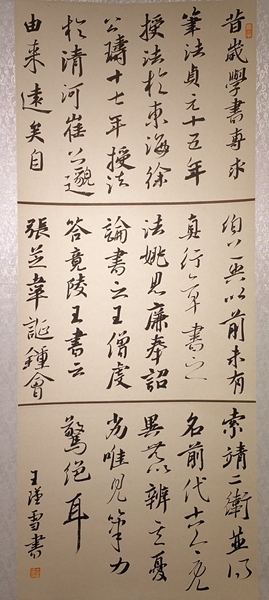 昔歲學書專求
筆法貞元十五年
授法於東海徐
公璹十七年授法
於清河崔公邈
由来遠矣自
伯英以前未有
真行草書之
法姚思廉奉詔
論書云王僧虔
答竟陵王書云
張芝韋誕鍾會
索靖二衛並得
名前代古今既
異無以辨其優
劣唯見筆力
驚絕耳
王瑾雪書